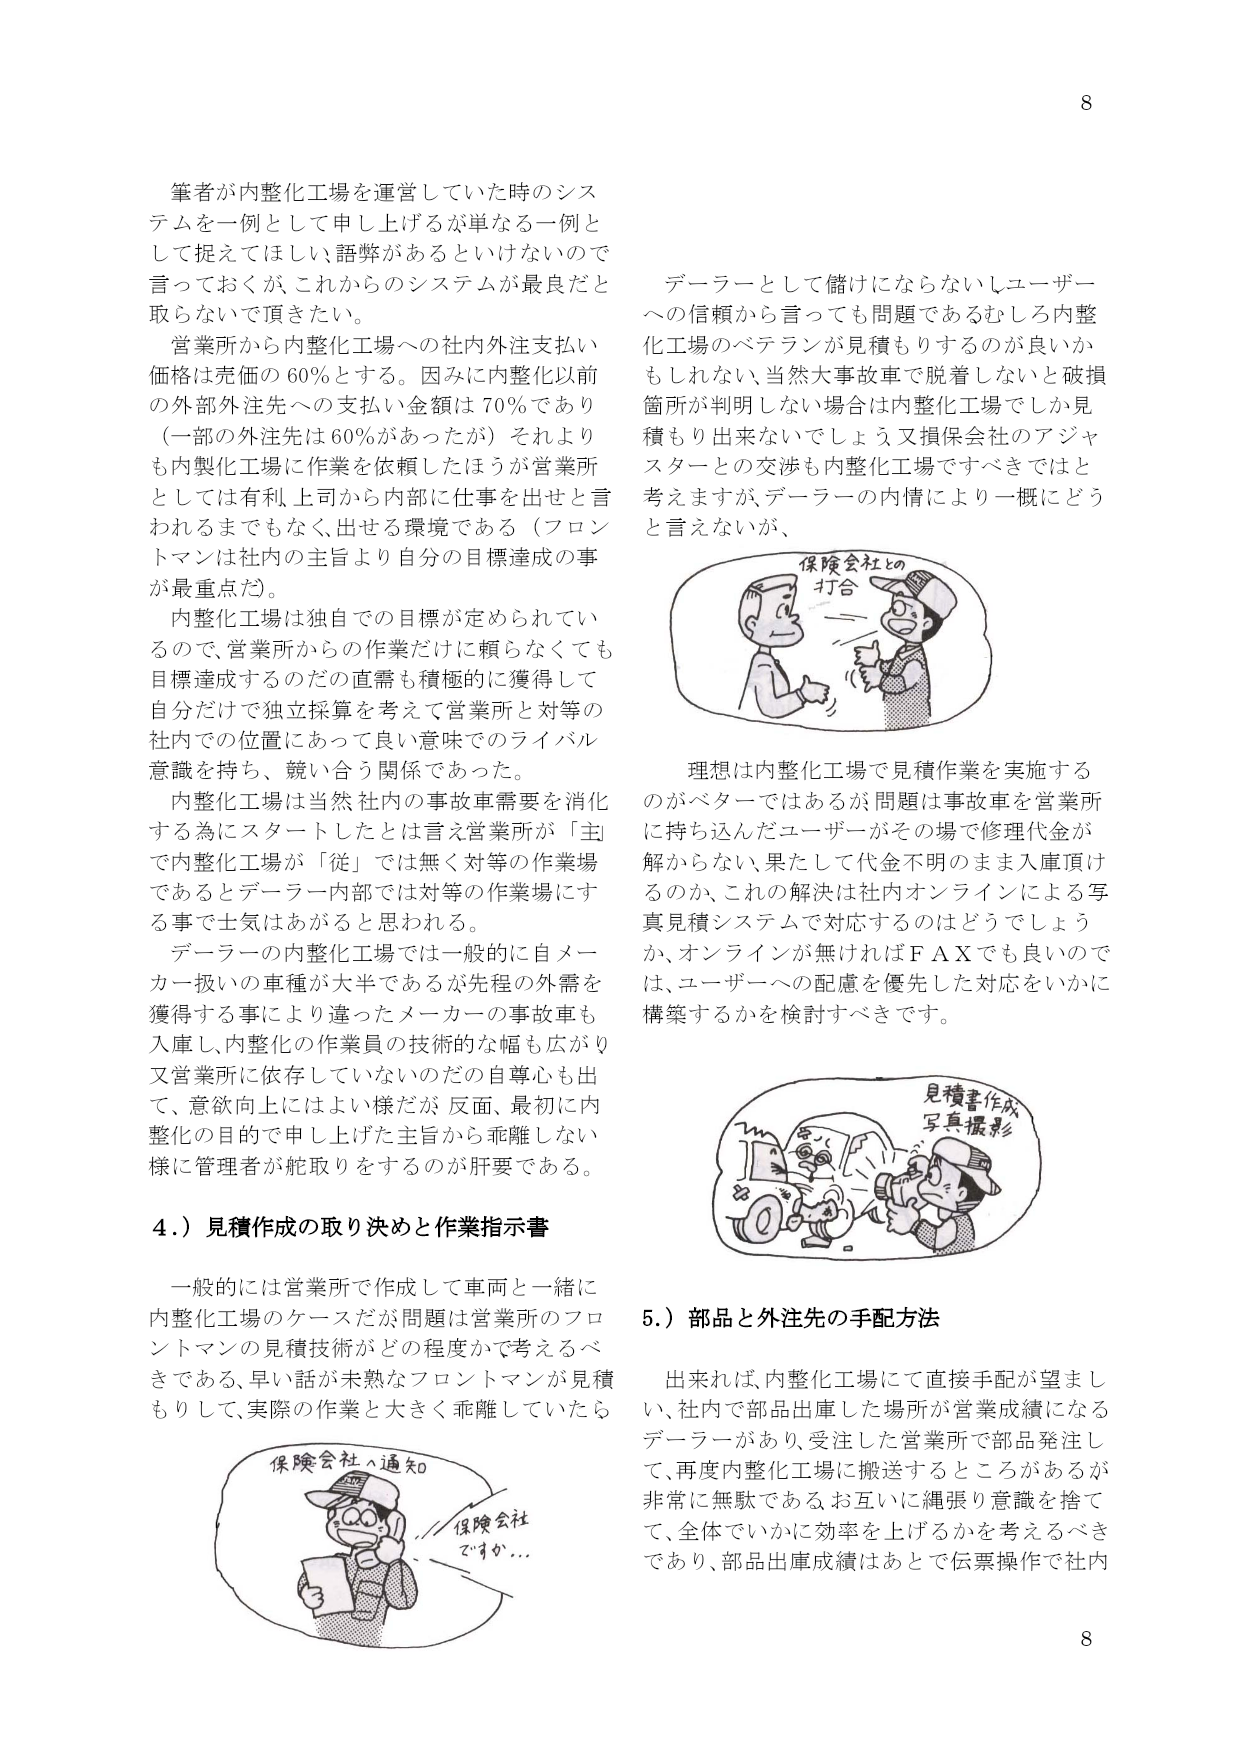 8
筆者が内整化工場を運営していた時のシス
テムを一例として申し上げるが単なる一例と
して捉えてほしい、語弊があるといけないので
言っておくが、これからのシステムが最良だと
取らないで頂きたい。
営業所から内整化工場への社内外注支払い
価格は売価の 60%とする。因みに内整化以前
の外部外注先への支払い金額は 70%であり
（一部の外注先は 60%があったが）それより
も内製化工場に作業を依頼したほうが営業所
としては有利、上司から内部に仕事を出せと言
われるまでもなく、出せる環境である（フロン
トマンは社内の主旨より自分の目標達成の事
が最重点だ）。
内整化工場は独自での目標が定められてい
るので、営業所からの作業だけに頼らなくても
目標達成するのだの直需も積極的に獲得して
自分だけで独立採算を考えて営業所と対等の
社内での位置にあって良い意味でのライバル
意識を持ち、競い合う関係であった。
内整化工場は当然社内の事故車需要を消化
する為にスタートしたとは言え営業所が「主」
で内整化工場が「従」では無く対等の作業場
であるとデーラー内部では対等の作業場にす
る事で士気はあがると思われる。
デーラーの内整化工場では一般的に自メー
カー扱いの車種が大半であるが先程の外需を
獲得する事により違ったメーカーの事故車も
入庫し、内整化の作業員の技術的な幅も広がり
又営業所に依存していないのだの自尊心も出
て、意欲向上にはよい様だが、反面、最初に内
整化の目的で申し上げた主旨から乖離しない
様に管理者が舵取りをするのが肝要である。
４.）見積作成の取り決めと作業指示書
一般的には営業所で作成して車両と一緒に
内整化工場のケースだが、問題は営業所のフロ
ントマンの見積技術がどの程度かで考えるべ
きである、早い話が未熟なフロントマンが見積
もりして、実際の作業と大きく乖離していたら
保険会社へ通知
保険会社
ですか…
デーラーとして儲けにならないし、ユーザー
への信頼から言っても問題であるむしろ内整
化工場のベテランが見積もりするのが良いか
もしれない、当然大事故車で脱着しないと破損
箇所が判明しない場合は内整化工場でしか見
積もり出来ないでしょう又損保会社のアジャ
スターとの交渉も内整化工場ですべきではと
考えますが、デーラーの内情により一概にどう
と言えないが、
保険会社との
打合
理想は内整化工場で見積作業を実施する
のがベターではあるが、問題は事故車を営業所
に持ち込んだユーザーがその場で修理代金が
解からない、果たして代金不明のまま入庫頂け
るのか、これの解決は社内オンラインによる写
真見積システムで対応するのはどうでしょう
か、オンラインが無ければＦＡＸでも良いので
は、ユーザーへの配慮を優先した対応をいかに
構築するかを検討すべきです。
見積書作成
写真撮影
5.）部品と外注先の手配方法
出来れば、内整化工場にて直接手配が望まし
い、社内で部品出庫した場所が営業成績になる
デーラーがあり、受注した営業所で部品発注し
て、再度内整化工場に搬送するところがあるが
非常に無駄である、お互いに縄張り意識を捨て
て、全体でいかに効率を上げるかを考えるべき
であり、部品出庫成績はあとで伝票操作で社内
8